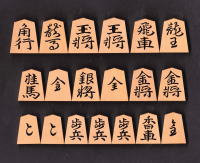 角行 龍馬 王將 王將 飛車 龍王
桂馬 全 銀將 全 金將 金將
と と 歩兵 歩兵 歩兵 香車